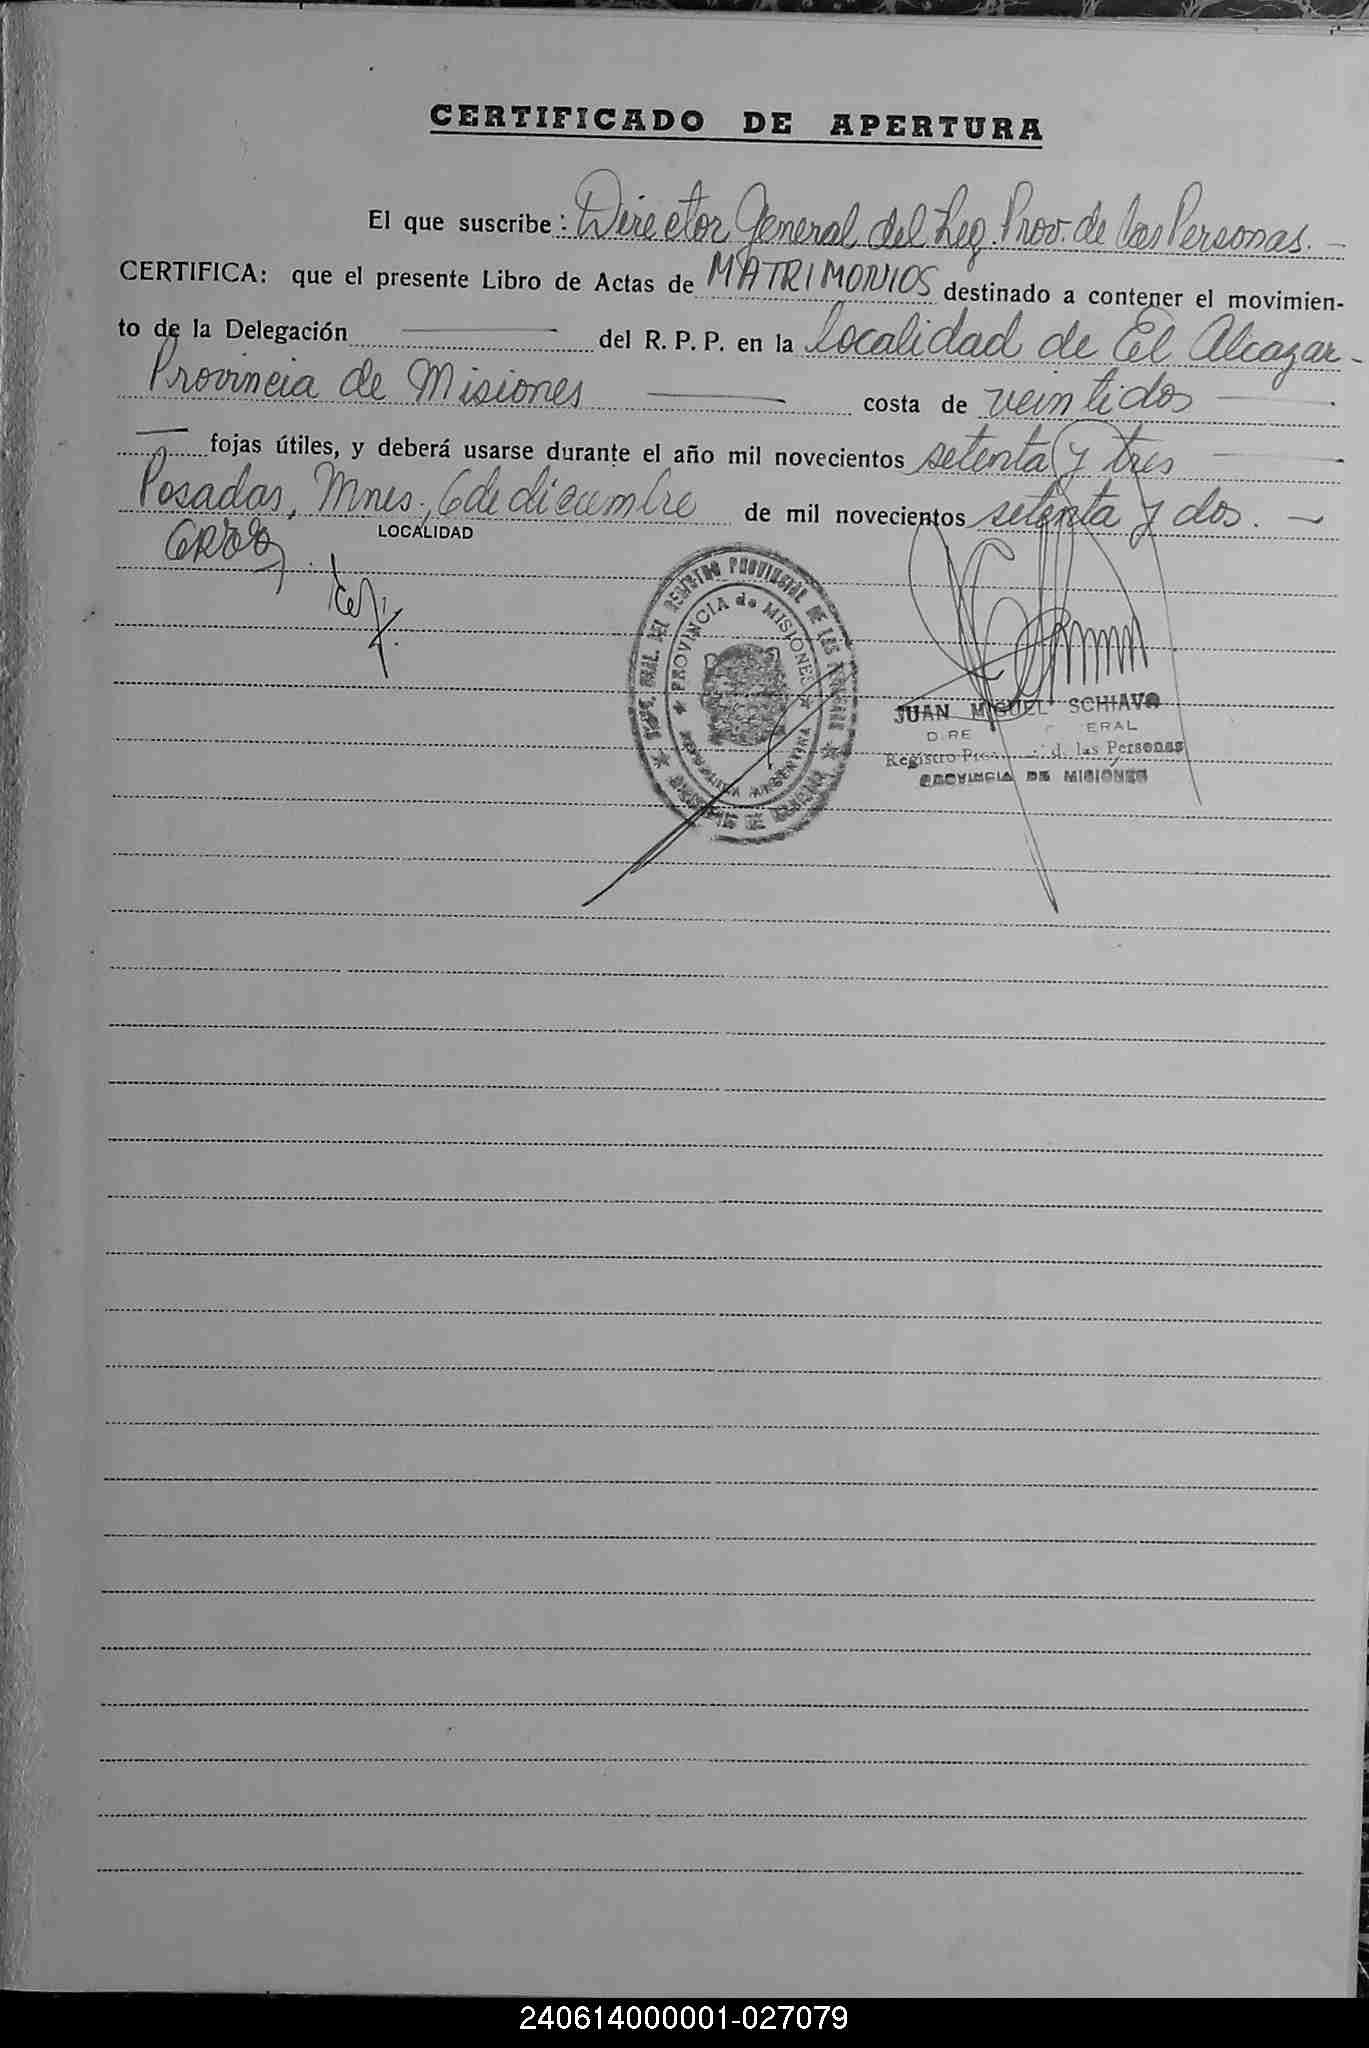 CERTIFICADO DE APERTURA
El que suscribe: Director General del Reg. Prov. de las Personas. -
CERTIFICA: que el presente Libro de Actas de MATRIMONIOS destinado a contener el movimien-
to de la Delegación del R. P. P. en la localidad de El Alcazar -
Provincia de Misiones costa de veintidos
fojas útiles, y deberá usarse durante el año mil novecientos setenta y tres
Posadas, Mnes., 6 de diciembre de mil novecientos setenta y dos. -
LOCALIDAD
GRAL. DEL REGISTRO PROVINCIAL DE LAS PERSONAS
PROVINCIA DE MISIONES
PROVINCIA de MISIONES
REPUBLICA ARGENTINA
JUAN MIGUEL SCHIAVO
Registro las Personas
PROVINCIA DE MISIONES
240614000001-027079